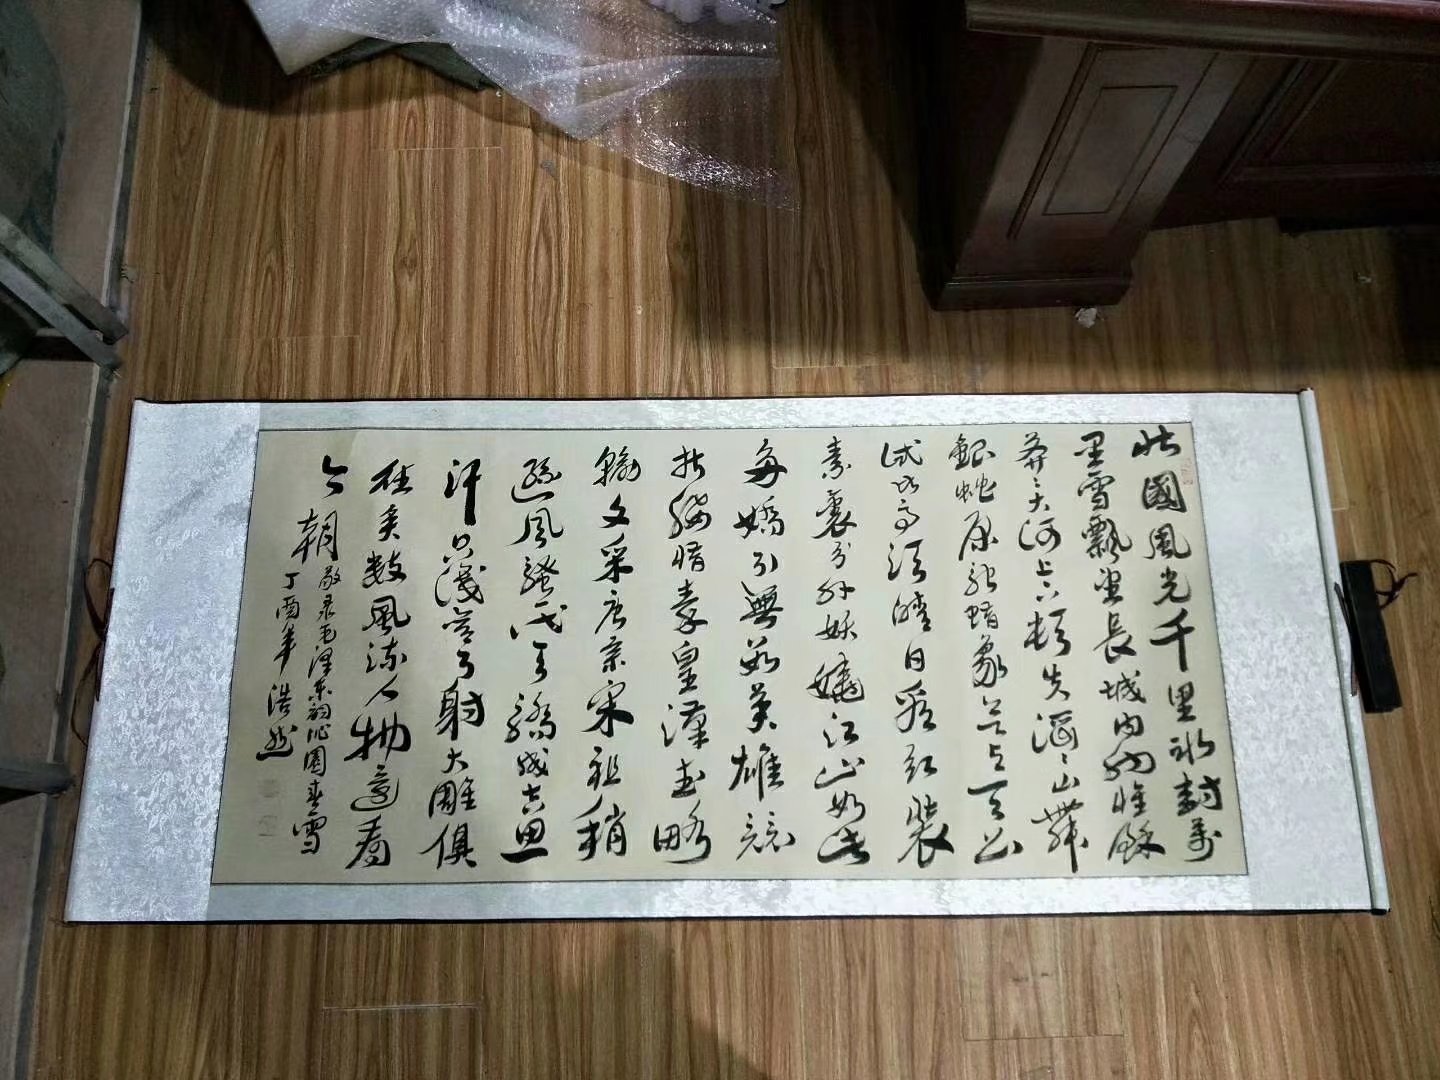 北國風光千里冰封萬
里雪飄望長城内外惟餘
莽〻大河上下頓失滔〻山舞
銀蛇原馳蠟象欲與天公
試比高須晴日看紅裝
素裹分外妖嬈江山如此
多嬌引無數英雄競
折腰惜秦皇漢武略
輸文采唐宗宋祖稍
遜風騷一代天驕成吉思
汗只識彎弓射大雕俱
往矣數風流人物還看
今朝
敬录毛澤东詞沁園春雪
丁酉年 浩然